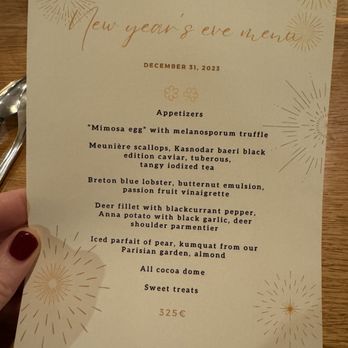 New year's eve menu
DECEMBER 31, 2023
Appetizers
"Mimosa egg" with melanosporum truffle
Meunière scallops, Kasnodar baeri black
edition caviar, tuberous,
tangy iodized tea
Breton blue lobster, butternut emulsion,
passion fruit vinaigrette
Deer fillet with blackcurrant pepper,
Anna potato with black garlic, deer
shoulder parmentier
Iced parfait of pear, kumquat from our
Parisian garden, almond
All cocoa dome
Sweet treats
325€